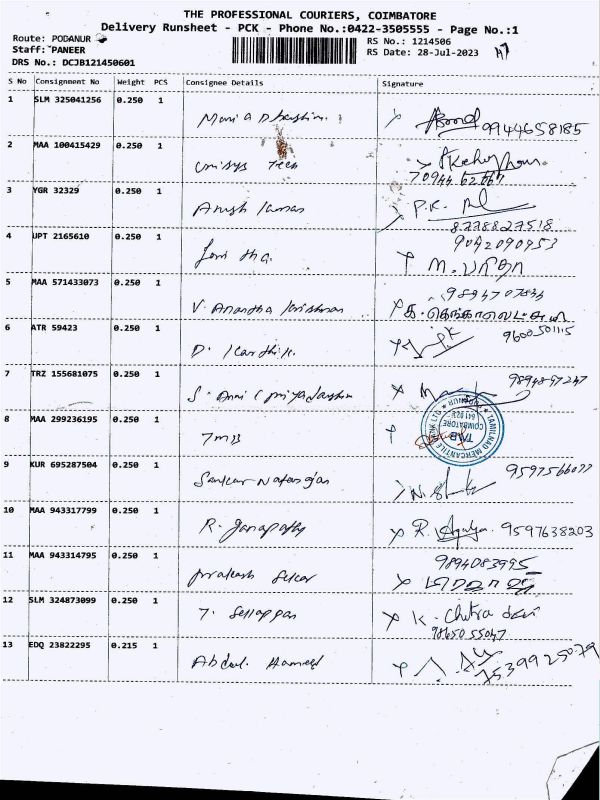 THE PROFESSIONAL COURIERS, COIMBATORE
Delivery Runsheet - PCK - Phone No.:0422-3505555 - Page No.:1
Route: PODANUR
Staff: PANEER
DRS No.: DCJB121450601
RS No.: 1214506
RS Date: 28-Jul-2023
S No Consignment No Weight PCS Consignee Details Signature
1 SLM 325041256 0.250 1 9944658185
2 MAA 100415429 0.250 1 Unisys Tech
3 YGR 32329 0.250 1 P.K.
8778827518
4 UPT 2165610 0.250 1 9042090953
5 MAA 571433073 0.250 1 V. Anantha krishnan
6 ATR 59423 0.250 1 D. Karthik. 9600501115
7 TRZ 155681075 0.250 1 9894897247
8 MAA 299236195 0.250 1 TMB
TAMILNAD MERCANTILE BANK LTD
TMB
COIMBATORE
9 KUR 695287504 0.250 1 Sankar Natarajan
10 MAA 943317799 0.250 1 R. Ganapathy 9597638203
11 MAA 943314795 0.250 1 Prakash Sekar 9894083995
12 SLM 324873099 0.250 1 T. Sellappan K. Chitra devi
9865055047
13 EDQ 23822295 0.215 1 Abdul Hameed 7539925079